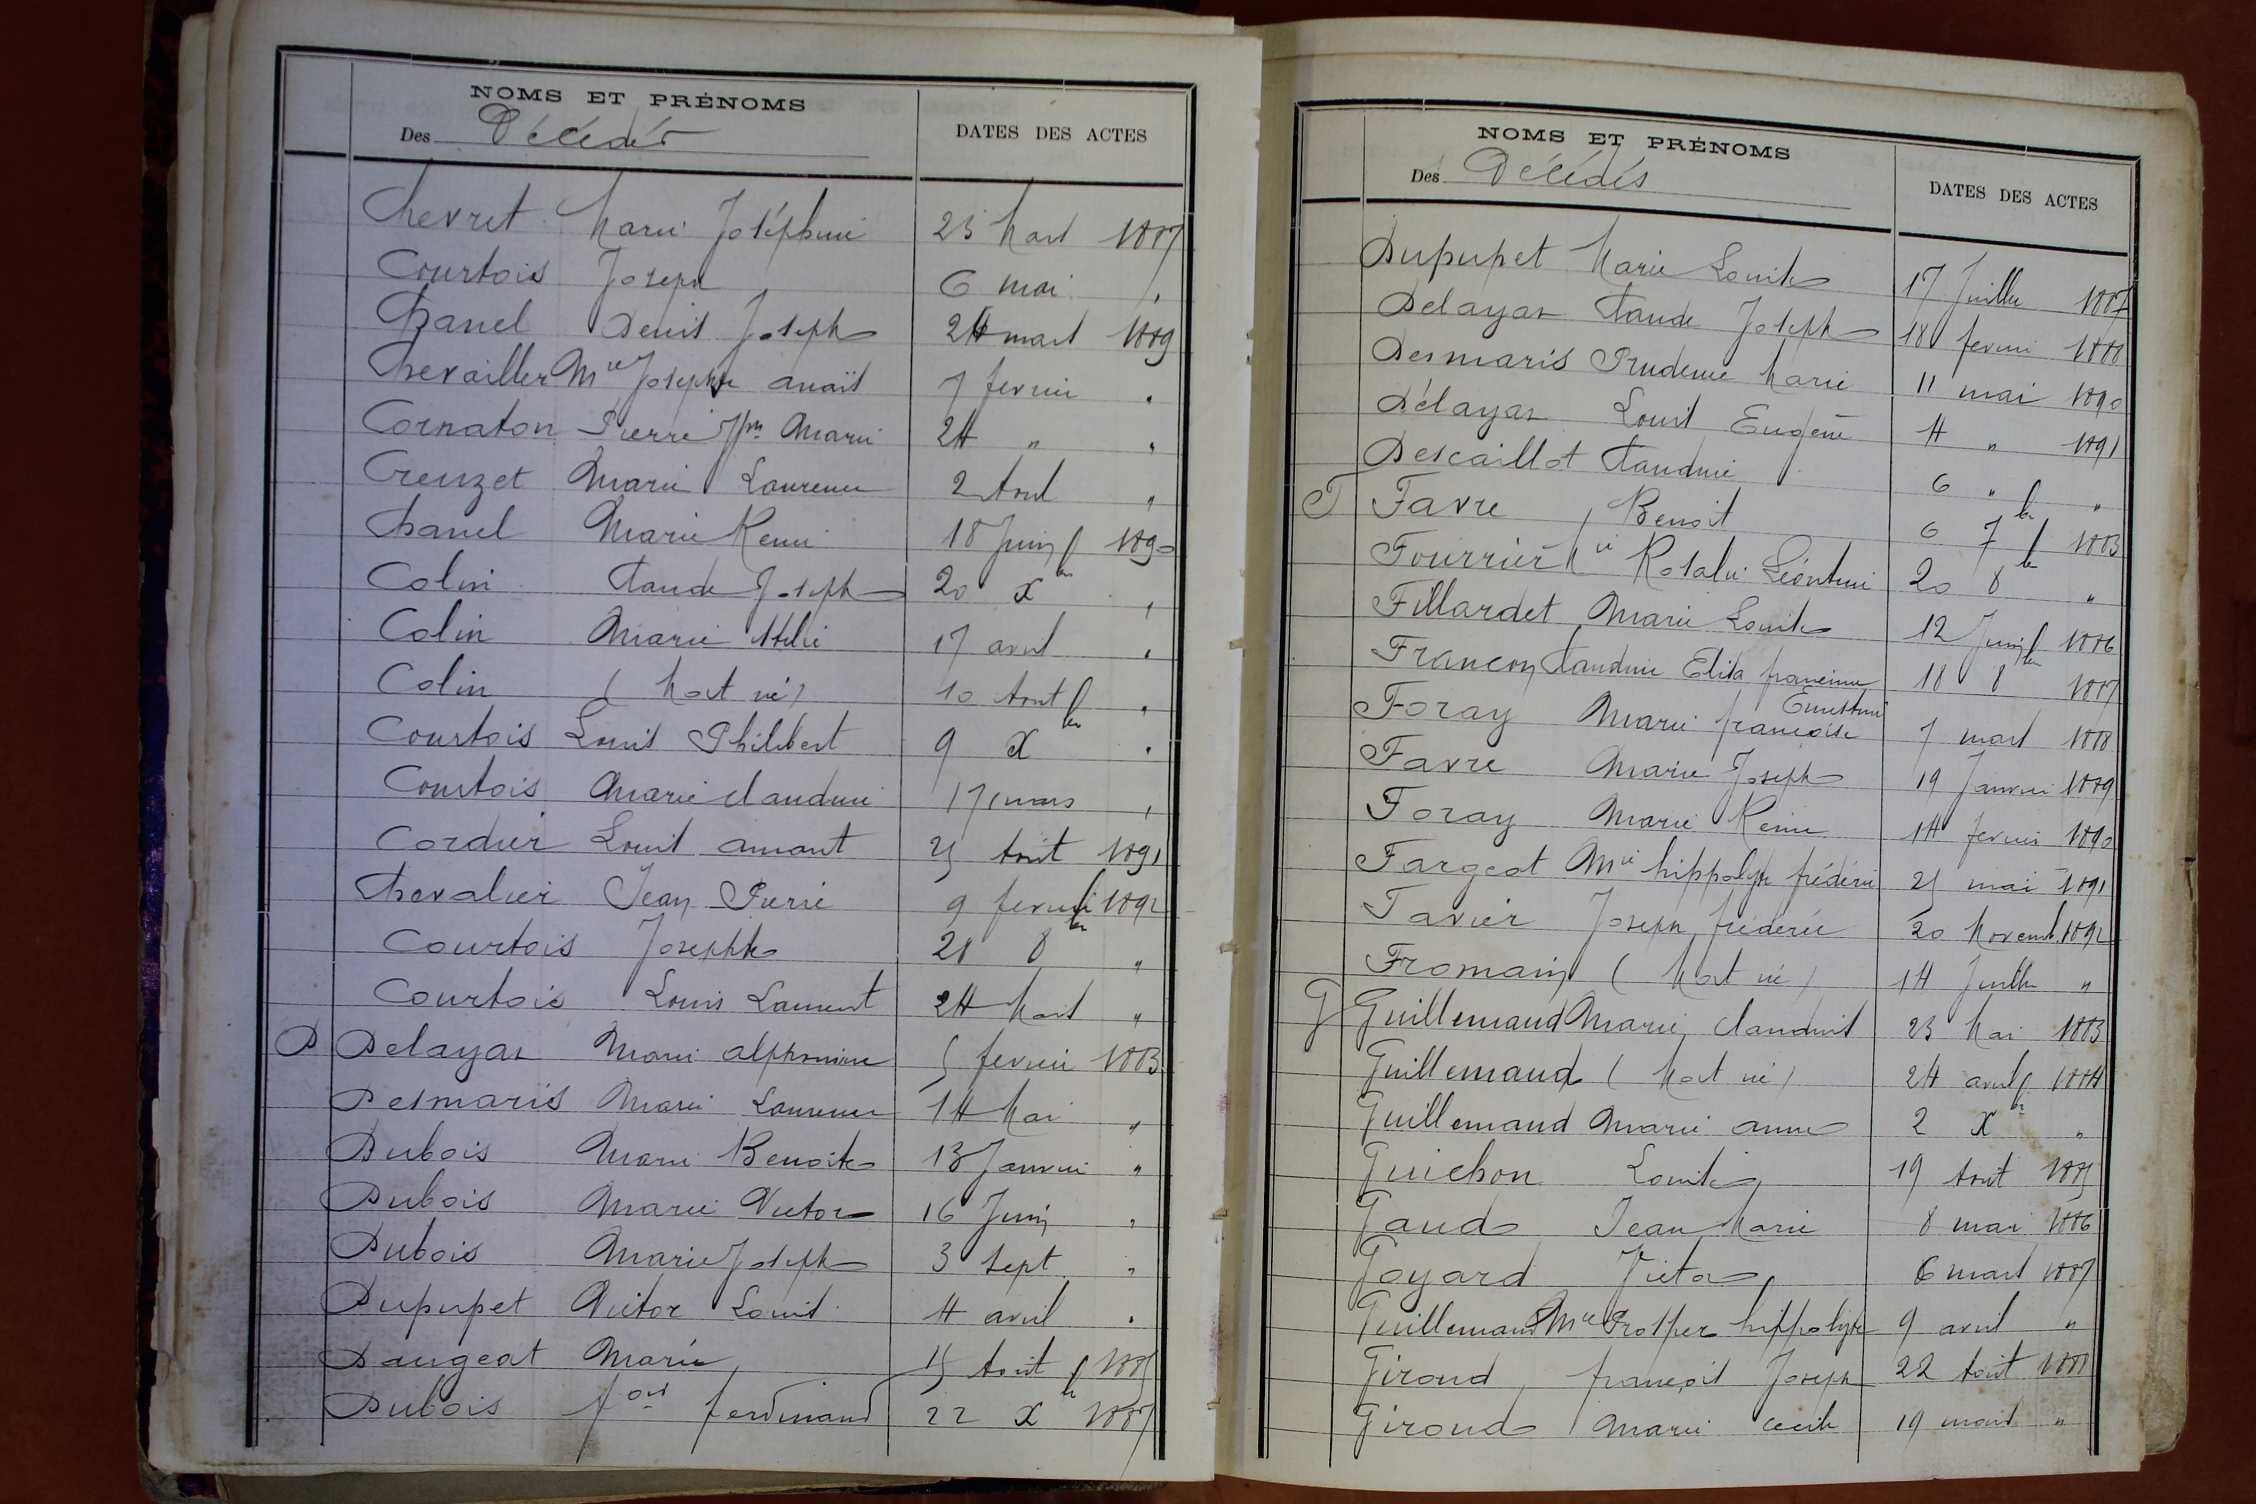 NOMS ET PRÉNOMS
Des Décédés
DATES DES ACTES
Chevret Marie Joséphine 23 Mars 1887
Courtois Joseph 6 mai "
Chanel Denis Joseph 24 mars 1889
Chevailler Mie Josephe anaïs 7 fevrier "
Cornaton Pierre Jph Marie 24 " "
Creuzet Marie Laurence 2 Aout "
Chanel Marie Remi 18 Juin 1890
Colin Claude Joseph 20 Xbre "
Colin Marie 17 avril "
Colin (Mort né) 10 Aout "
Courtois Louis Philibert 9 Xbre "
Courtois Marie claudine 17 mars "
Cordier Louis amant 25 Août 1891
Chevalier Jean Pierre 9 fevrier 1892
Courtois Josephte 28 8bre "
Courtois Louis Laurent 24 Mars "
D Delayar Marie alphonsine 5 fevrier 1883
Desmaris Marie Laurence 14 Mai "
Dubois Marie Benoite 13 Janvier "
Dubois Marie Victor 16 Juin "
Dubois Marie Joseph 3 Sept "
Dupupet Victor Louis 4 avril "
Daugeat Marie 15 Août 1885
Dubois fois ferdinand 22 Xbre 1887
NOMS ET PRÉNOMS
Des Décédés
DATES DES ACTES
Dupupet Marie Louise 17 Juillet 1887
Delayar Claude Joseph 18 fevrier 1888
Desmaris Prudence Marie 11 mai 1890
Délayar Louis Eugène 4 " 1891
Descaillot Claudine 6 " "
F Favre Benoit 6 7bre 1883
Fourrier Mie Rosalie Léontine 20 8bre "
Fillardet Marie Louise 12 Juin 1886
Françon Claudine Elisa francine 18 8bre 1887
Ernestine
Foray Marie françoise 7 mars 1888
Favre Marie Joseph 19 Janvier 1889
Foray Marie Remi 14 fevrier 1890
Fargeot Mie hippolyte fréderic 25 mai 1891
Favier Joseph fréderic 20 Novemb. 1892
Fromain (Mort né) 14 Juillet "
G Guillemaud Marie Claudius 23 Mai 1883
Guillemaud (Mort né) 24 avril 1884
Guillemaud Marie anne 2 Xbre "
Guichon Louise 19 Aout 1885
Gaud Jean Marie 8 mai 1886
Goyard Victor 6 mars 1887
Guillemaud Mie Prosper hippolyte 9 avril "
Giroud françois Joseph 22 Août 1888
Giroud Marie Cecile 19 mars "